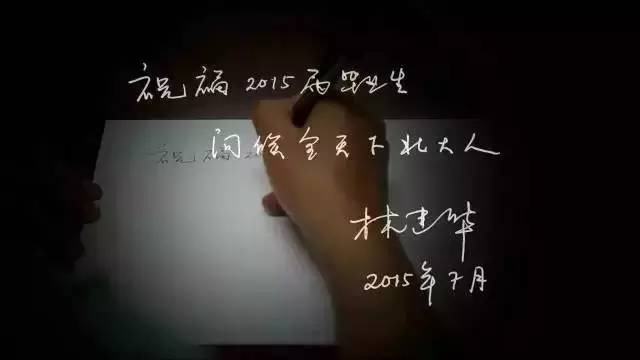 祝福2015届毕业生
问候全天下北大人
林建华
2015年7月
祝福